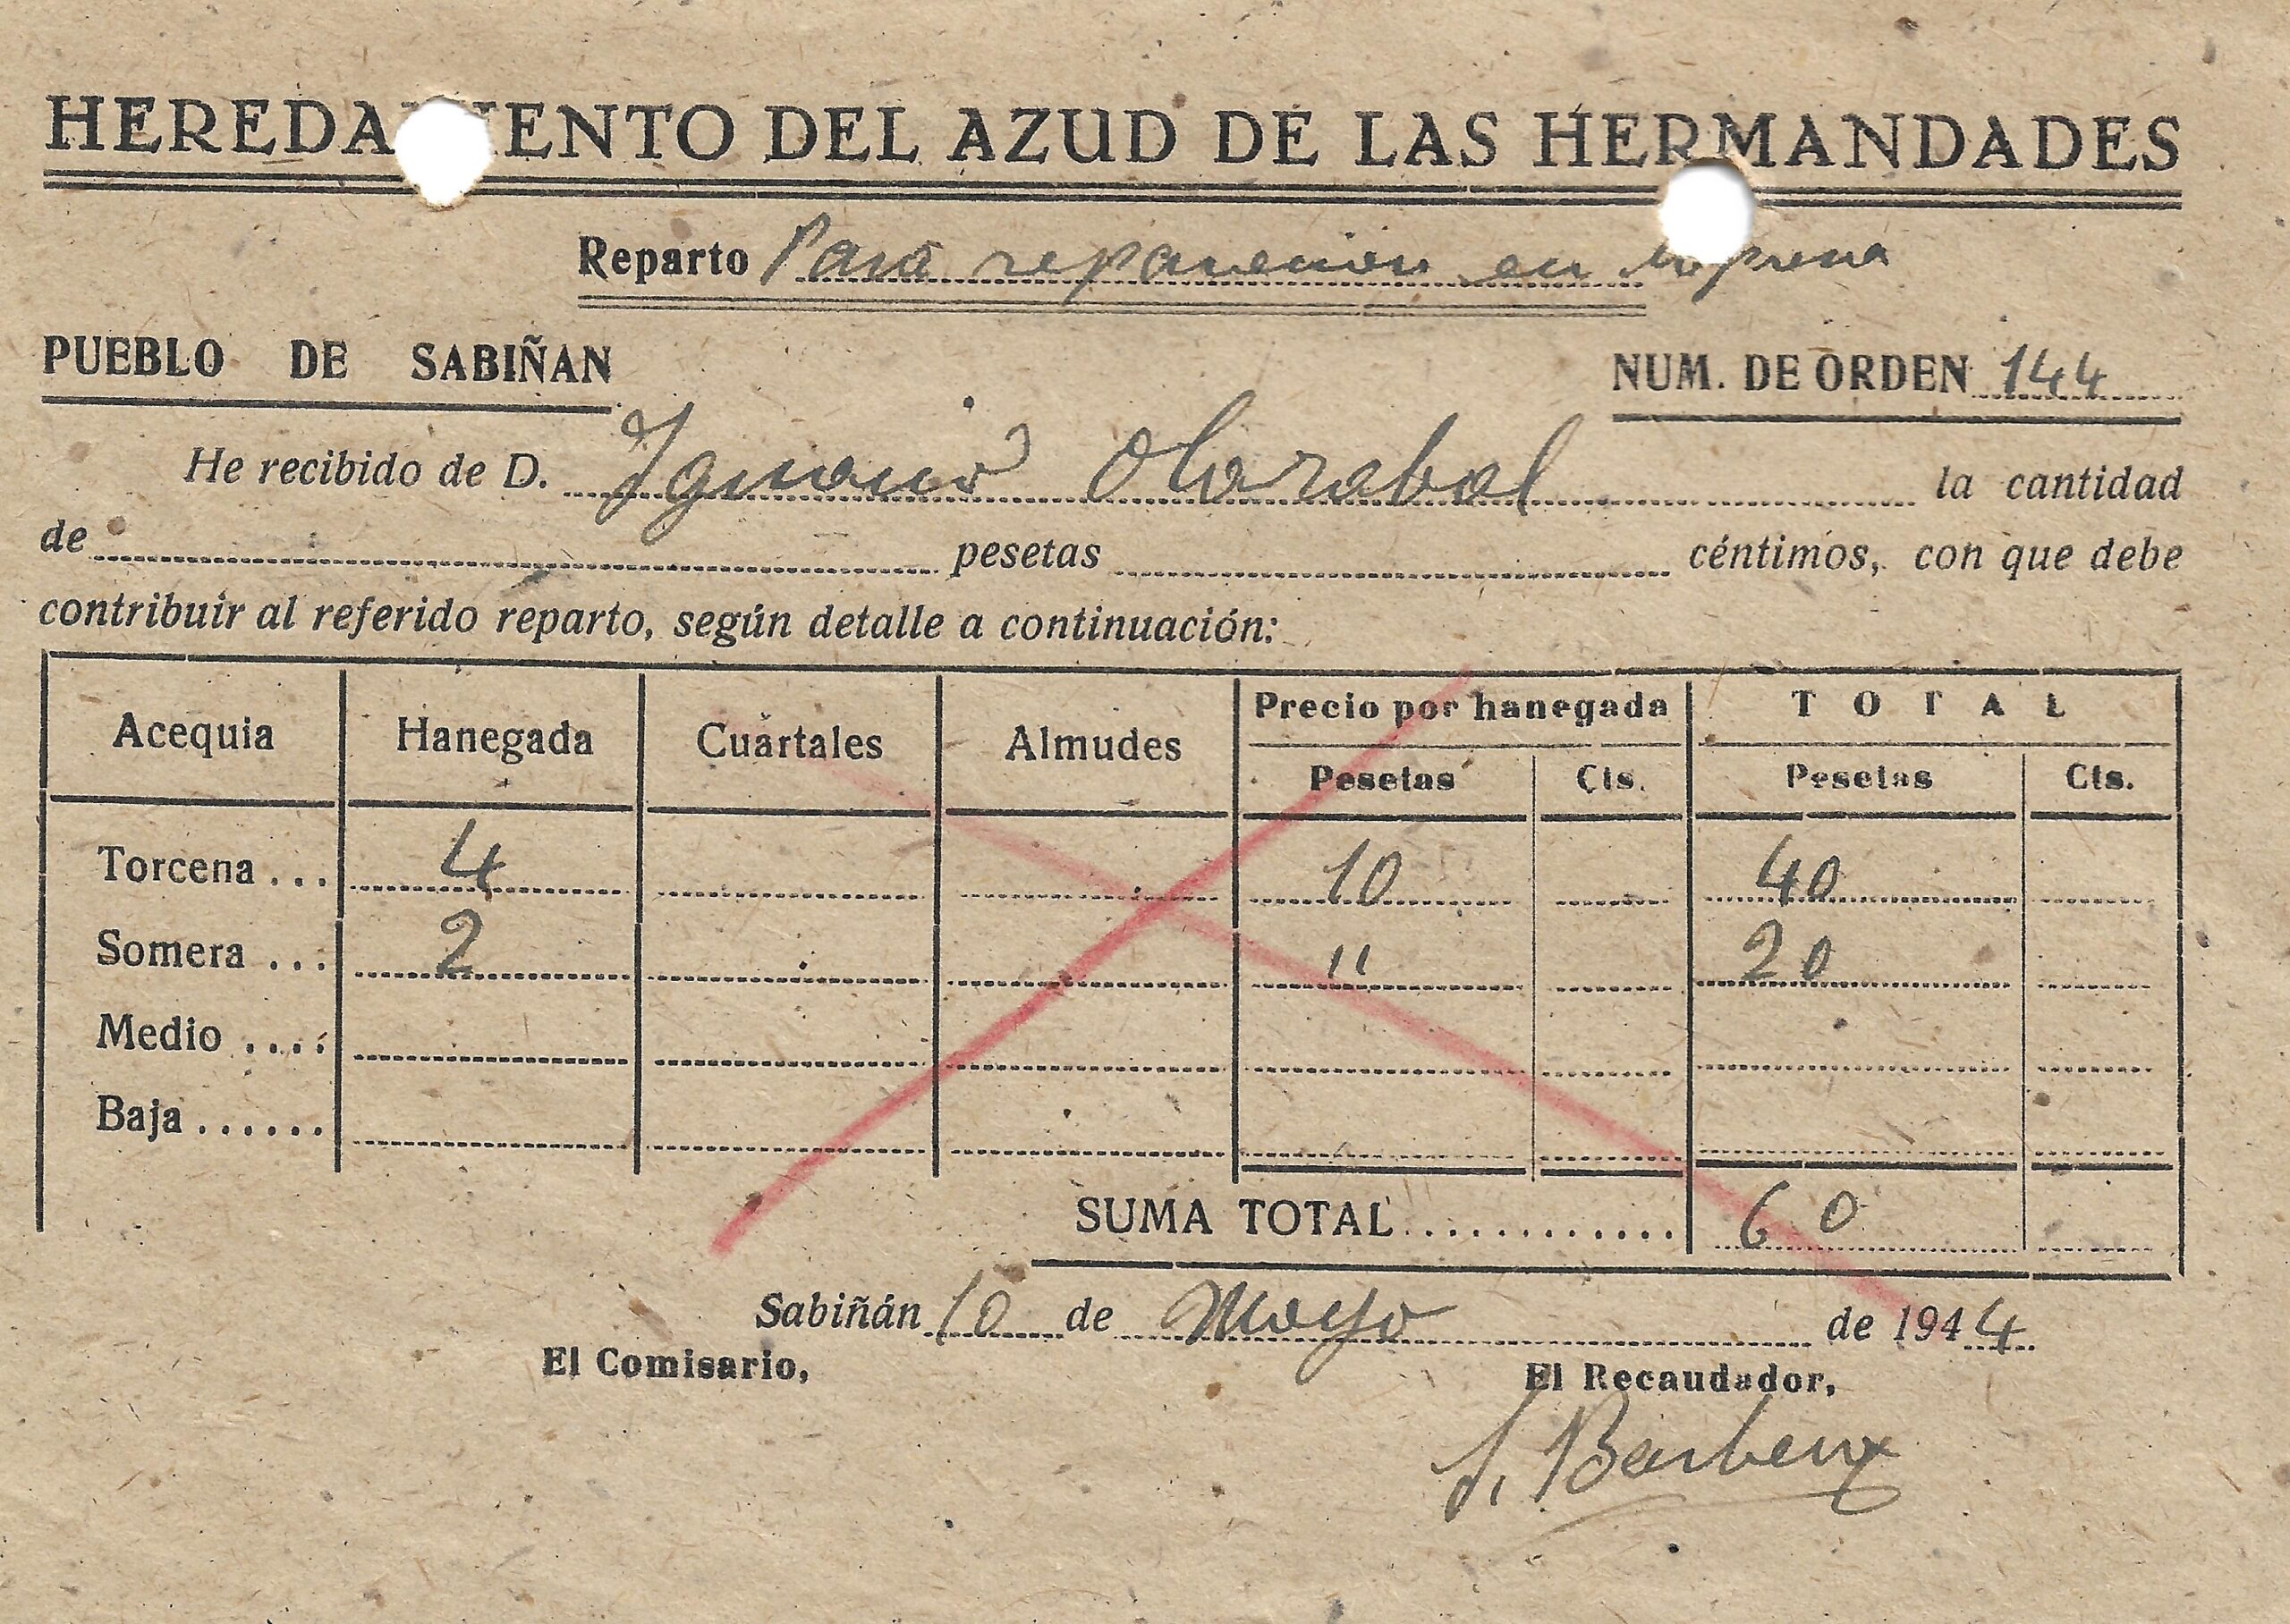 HEREDAMIENTO DEL AZUD DE LAS HERMANDADES
Reparto Para reparación en la presa
PUEBLO DE SABIÑAN
NUM. DE ORDEN 144
He recibido de D. Ignacio Olarabal la cantidad
de pesetas céntimos, con que debe
contribuir al referido reparto, según detalle a continuación:
Acequia Hanegada Cuartales Almudes Precio por hanegada TOTAL
Pesetas Cts. Pesetas Cts.
Torcena ... 4 10 40
Somera ... 2 " 20
Medio ....
Baja ......
SUMA TOTAL............ 60
Sabiñán 10 de Mayo de 1944
El Comisario,
El Recaudador,